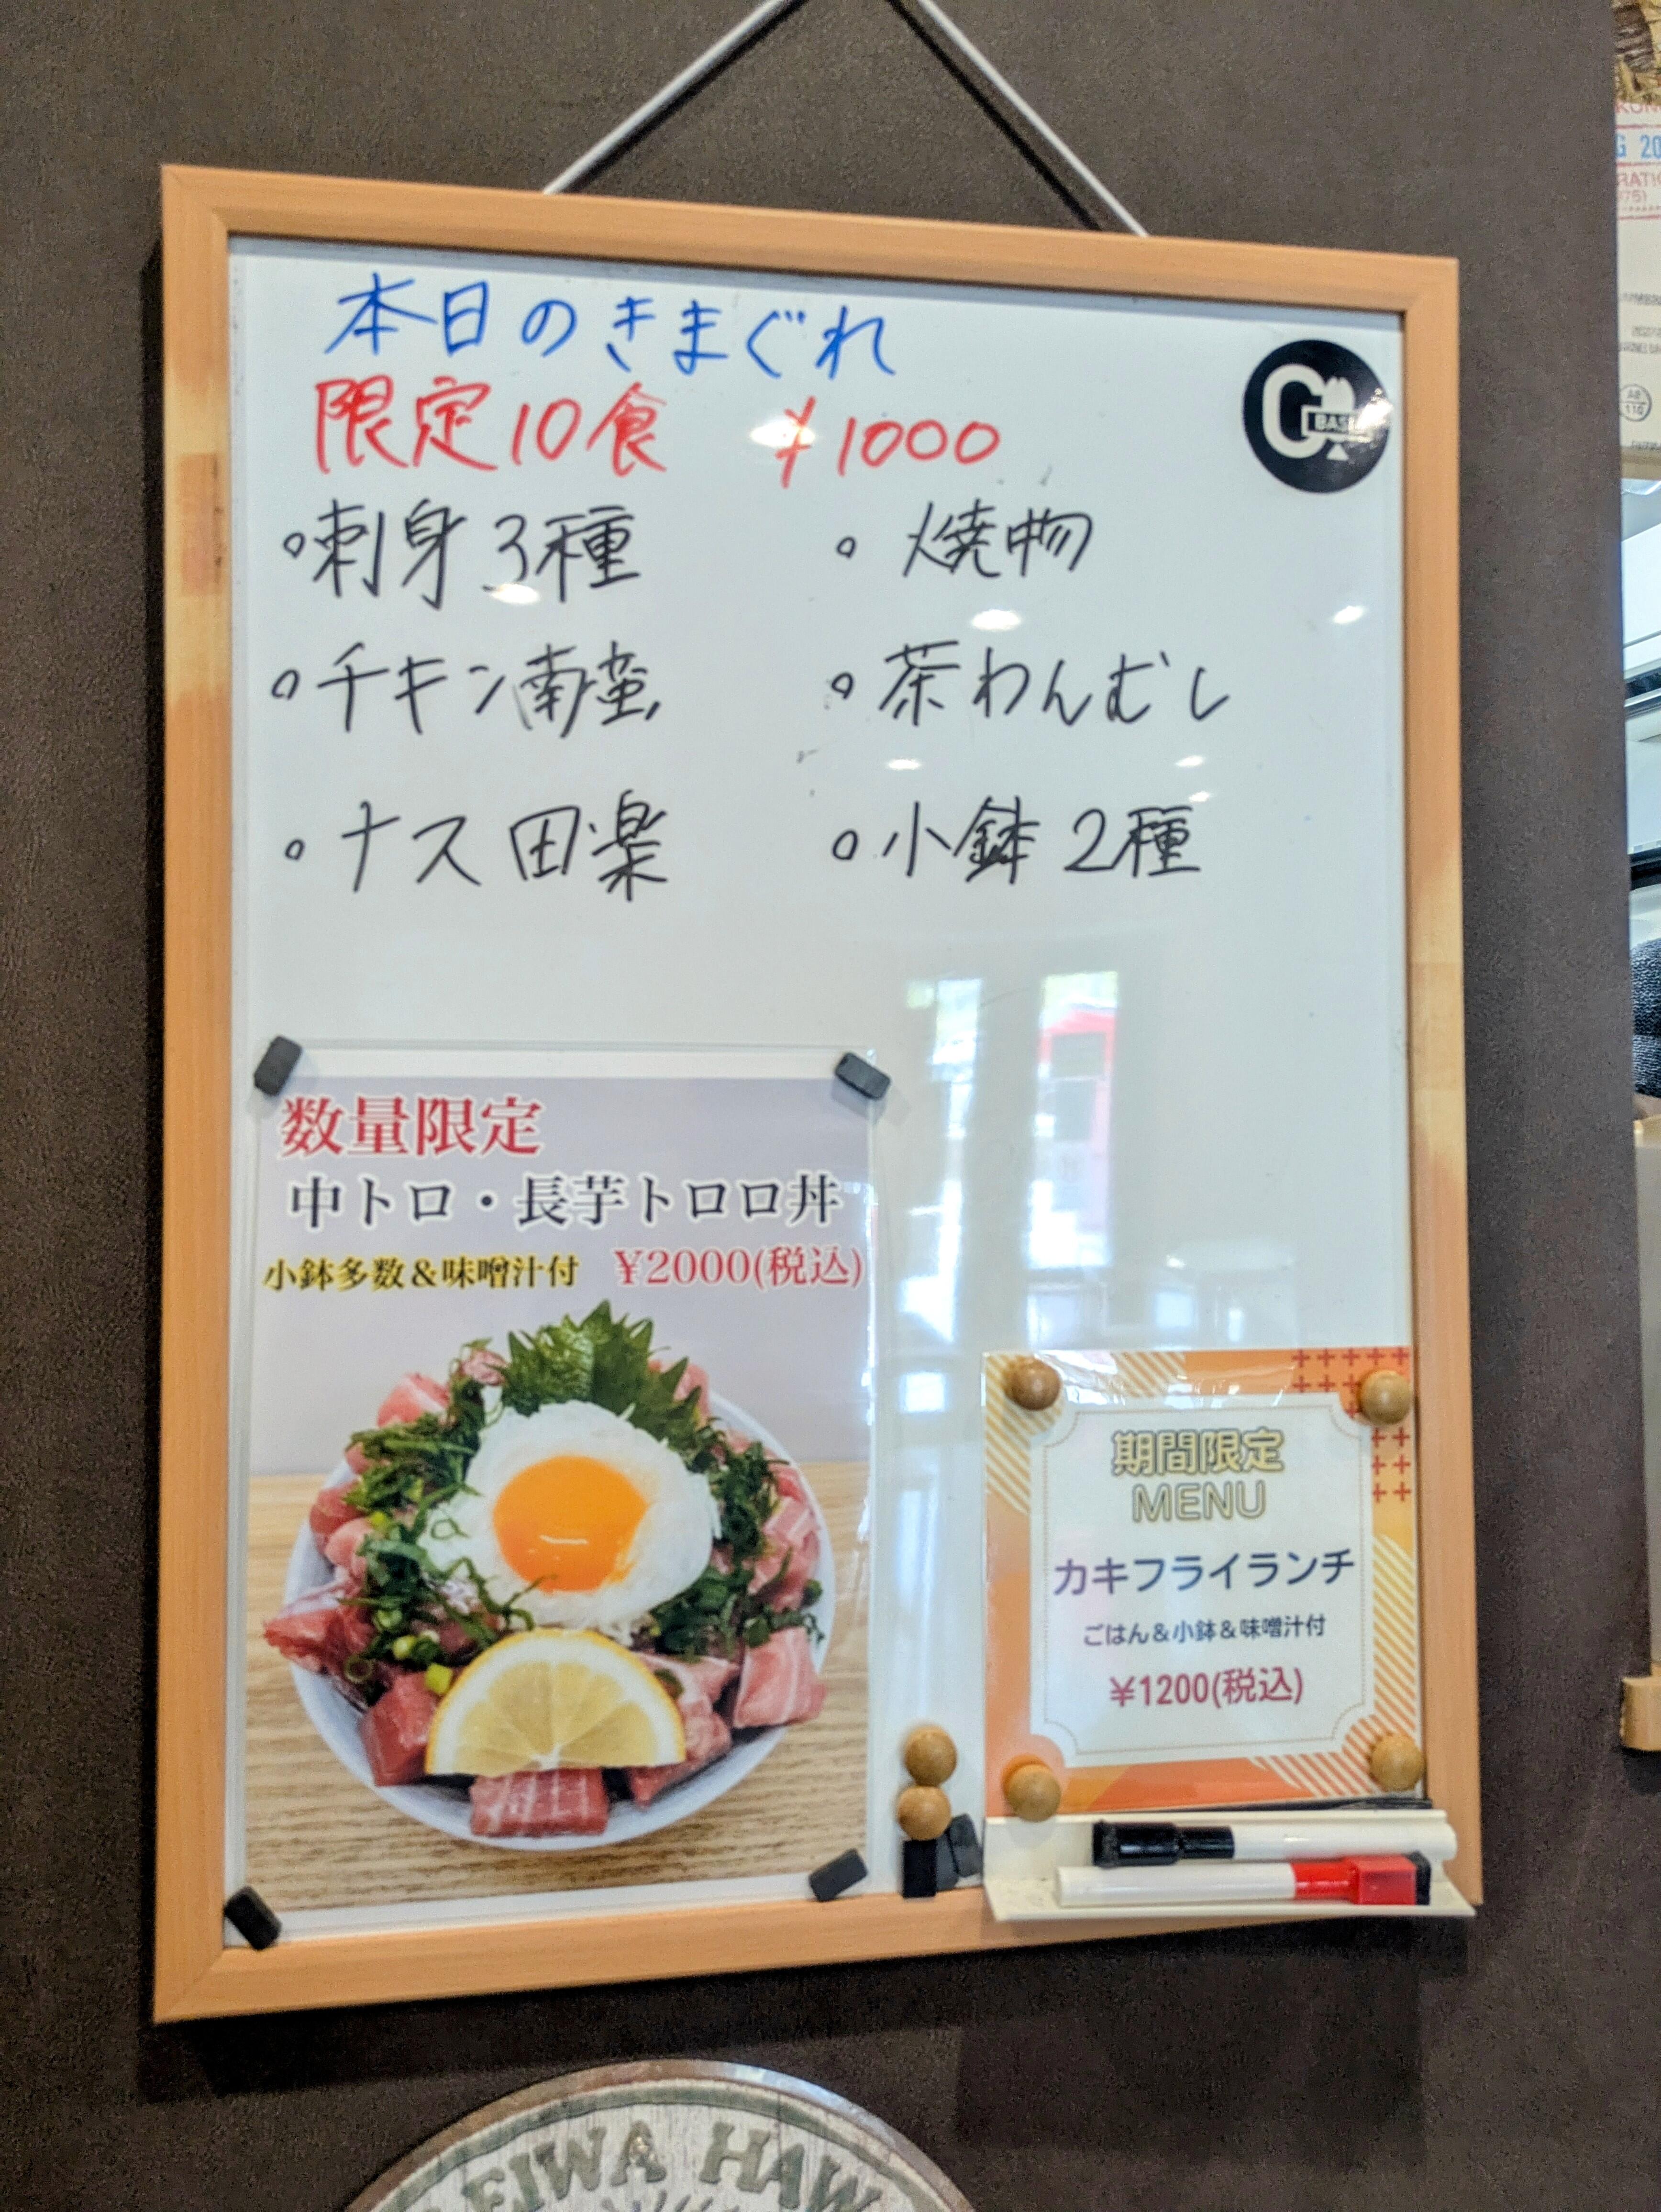 本日のきまぐれ
限定10食 ¥1000
BASE
○刺身3種
○焼物
○チキン南蛮
○茶わんむし
○ナス田楽
○小鉢2種
数量限定
中トロ・長芋トロロ丼
小鉢多数&味噌汁付 ¥2000(税込)
期間限定
MENU
カキフライランチ
ごはん&小鉢&味噌汁付
¥1200(税込)